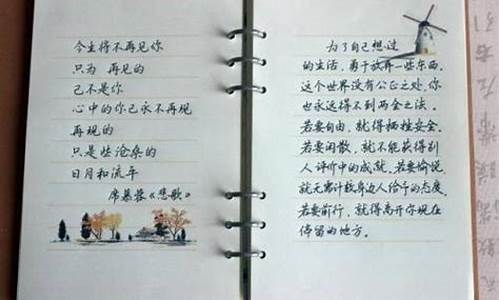 今生将不再见你
只为 再见的
已不是你
心中的你已永不再现
再现的
只是些沧桑的
日月和流年
席慕蓉《悲歌》
为了自己想过
的生活,勇于放弃一些东西.
这个世界没有公正之处,你
也永远得不到两全之法.
若要自由,就得牺牲安全.
若要闲散,就不能获得别
人评价中的成就.若要愉悦,
就无需计较身边人给予的态度.
若要前行,就得离开你现在
停留的地方.